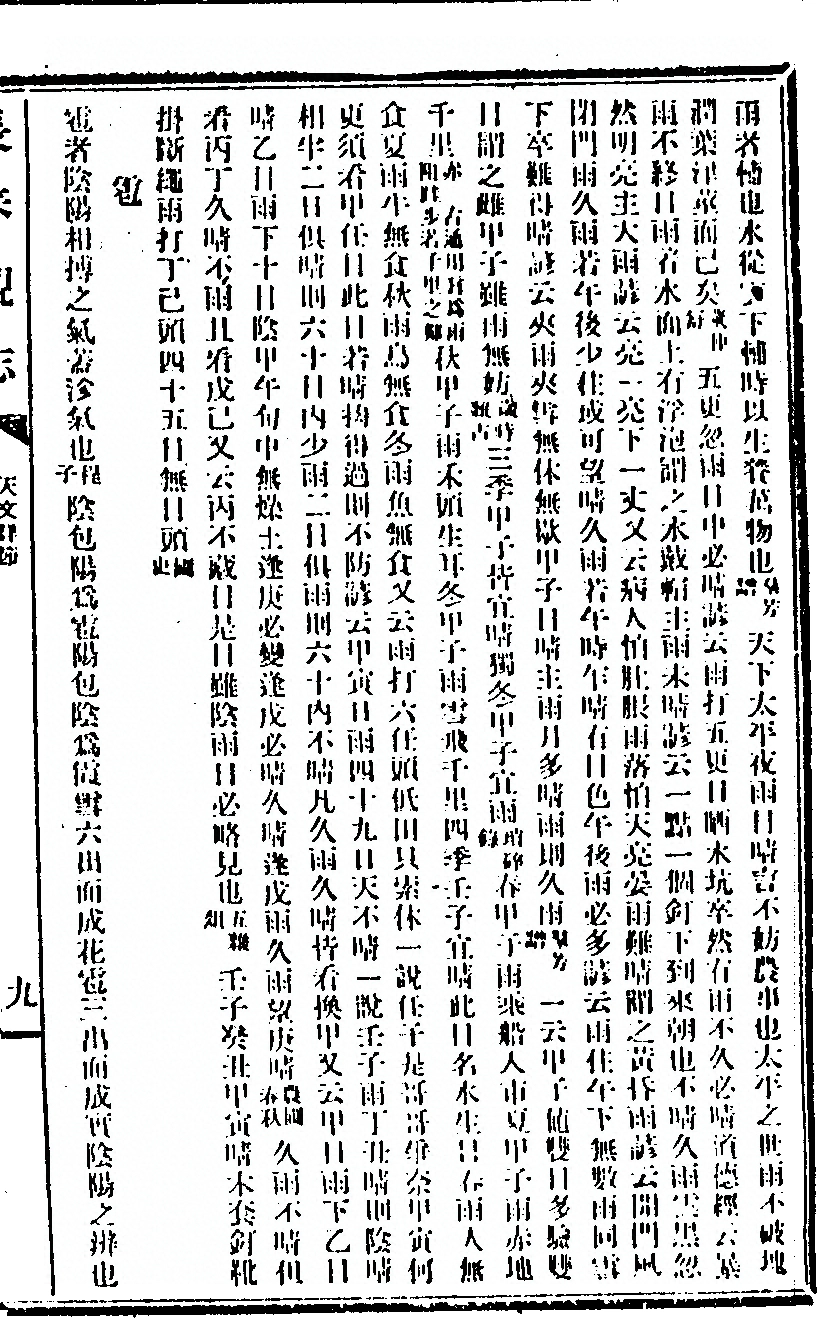 雨者輔也水從雲下輔時以生養萬物也羣芳譜天下太平夜雨日晴言不妨農事也太平之世雨不破塊
潤葉津莖而已矣董仲舒五更忽雨日中必晴諺云雨打五更日晒水坑卒然有雨不久必晴道德經云暴
雨不終日雨着水面上有浮泡謂之水戴帽主雨未晴諺云一點一個釘下到來朝也不晴久雨雲黑忽
然明亮主大雨諺云亮一亮下一丈又云病人怕肚脹雨落怕天亮晏雨難晴謂之黃昏雨諺云開門風
閉門雨久雨若午後少住或可望晴久雨若午時乍晴有日色午後雨必多諺云雨住午下無數雨同雪
下卒難得晴諺云夾雨夾雪無休無歇甲子日晴主雨月多晴雨則久雨羣芳譜一云甲子値雙日多驗雙
日謂之雌甲子雖雨無妨三季甲子皆宜晴獨冬甲子宜雨瑣碎錄春甲子雨乘船入市夏甲子雨赤地
千里秋甲子雨禾頭生耳冬甲子雨雪飛千里四季壬子宜晴此日名水生日春雨人無
食夏雨牛無食秋雨鳥無食冬雨魚無食又云雨打六任頭低田只索休一說任子是哥哥爭奈甲寅何
更須看甲任日此日若晴拗得過則不防諺云甲寅日雨四十九日天不晴一說壬子雨丁丑晴則陰晴
相半二日俱晴則六十日內少雨二日俱雨則六十內不晴凡久雨久晴皆看換甲又云甲日雨下乙日
晴乙日雨下十日陰甲午旬中無燥土逢庚必變逢戊必晴久晴逢戊雨久雨望庚晴農圃春秋久雨不晴但
看丙丁久晴不雨且看戊己又云丙不藏日是日雖陰雨日必略見也五雜俎壬子癸丑甲寅晴木套釘靴
掛斷繩雨打丁己頭四十五日無日頭國史
雹
雹者陰陽相搏之氣蓋沴氣也程子陰包陽爲雹陽包陰爲霰雪六出而成花雹三出而成實陰陽之辨也
天文
九